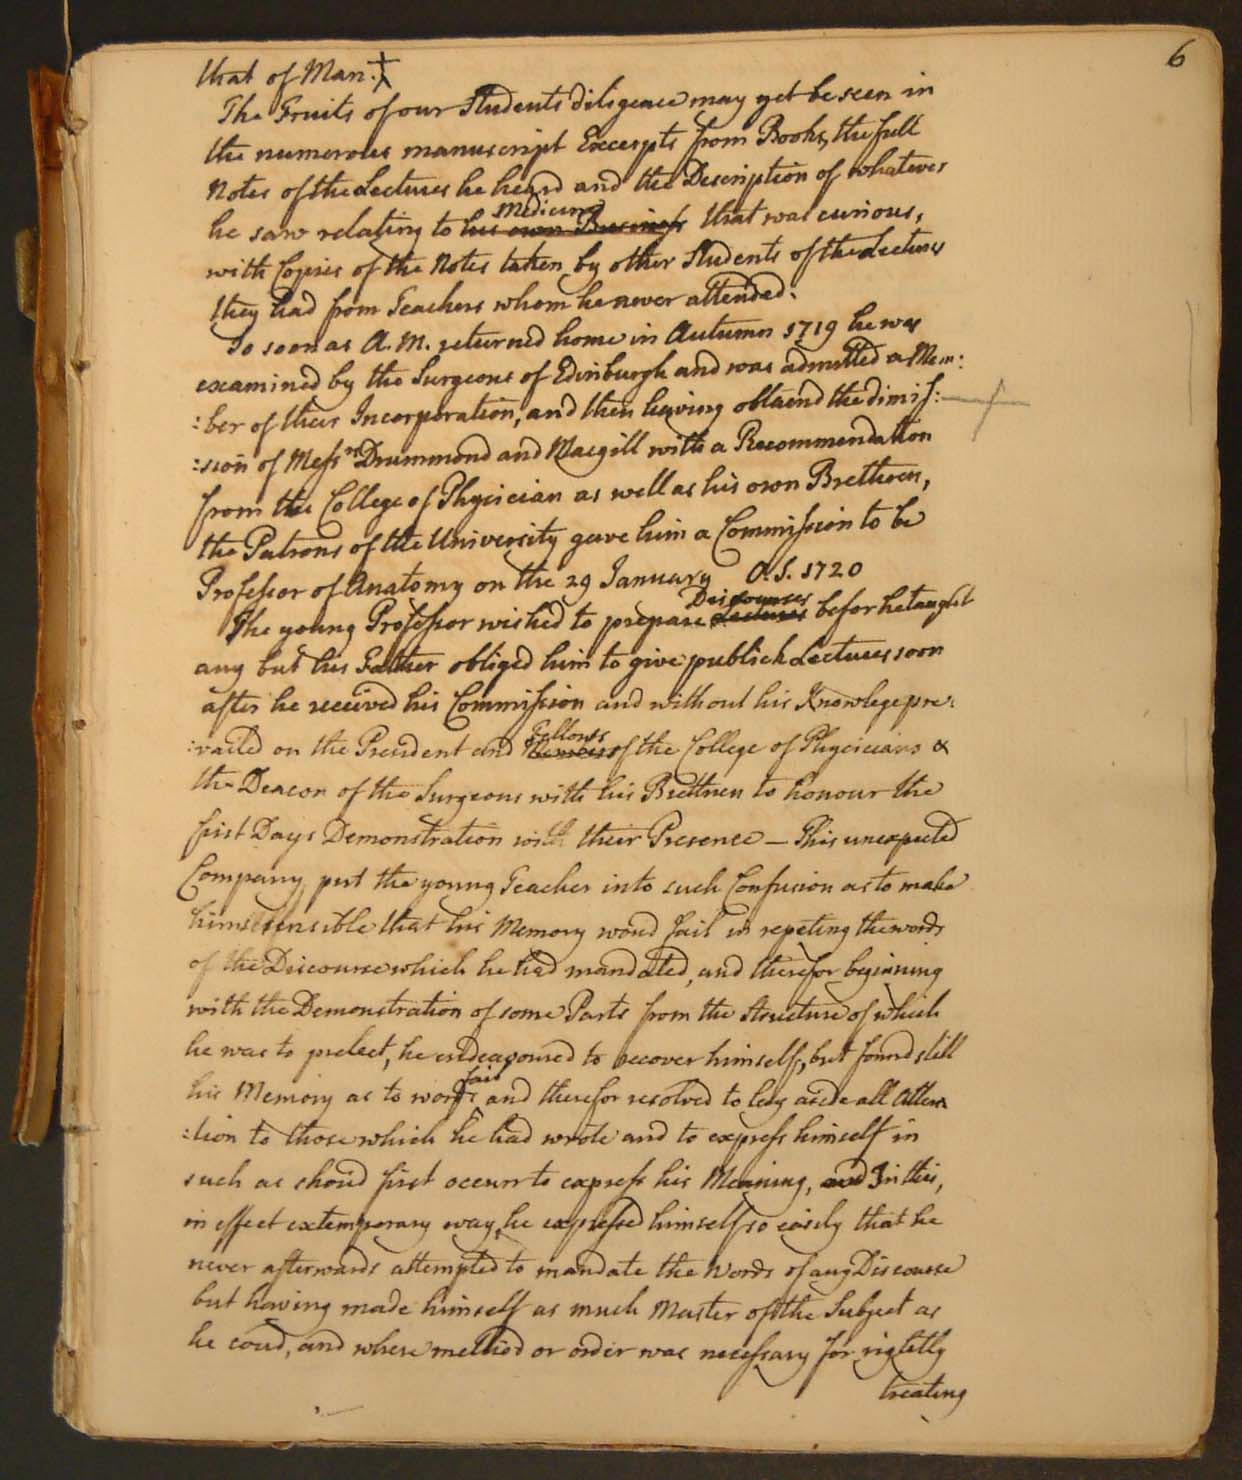 6
that of Man. ☓
The Fruits of our Students diligence may yet be seen in
the numerous manuscript Excerpts from Books, the full
Notes of the Lectures he heard and the Description of whatever
Medicine
he saw relating to his own Business that was curious,
with Copies of the Notes taken by other Students of the Lectures
they had from Teachers whom he never attended.
So soon as A. M. returned home in Autumn 1719 he was
examined by the Surgeons of Edinburgh and was admitted a Mem:
:ber of their Incorporation, and then having obtaind the dimis:
:sion of Messrs Drummond and Macgill with a Recommendation
from the College of Physician as well as his own Brethren,
the Patrons of the University gave him a Commission to be
Professor of Anatomy on the 29 January O.S. 1720
Discourses
The young Professor wished to prepare Lectures befor he taught
any but his Father obliged him to give publick Lectures soon
after he received his Commission and without his Knowlege pre:
Fellows
:vailed on the President and Members of the College of Physicians &
the Deacon of the Surgeons with his Brethren to honour the
first Days Demonstration with their Presence — This unexpected
Company put the young Teacher into such Confusion as to make
him sensible that his Memory woud fail in repeting the words
of the Discourse which he had mandated, and therefor beginning
with the Demonstration of some Parts from the Structure of which
he was to prelect, he endeavoured to recover himself, but found still
fail
his Memory as to words and therefor resolved to lay aside all Atten
:tion to those which he had wrote and to express himself in
such as shoud first occurr to express his Meaning, and In this,
in effect extemporary way, he expressed himself so easily that he
never afterwards attempted to mandate the Words of any Discourse
but having made himself as much Master of the Subject as
he coud, and where method or order was necessary for rightly
treating